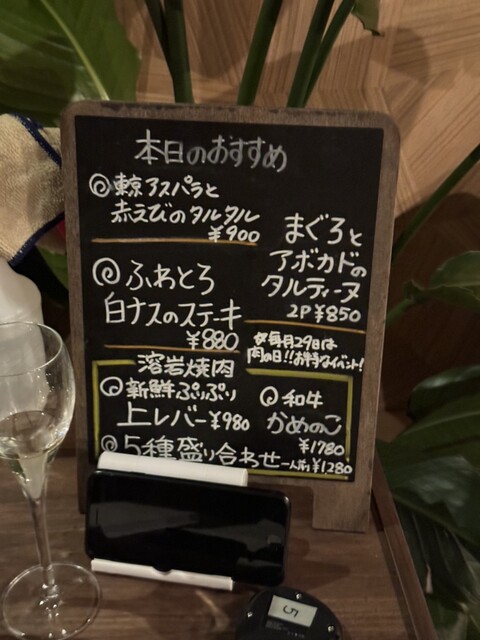 本日のおすすめ
◎東京アスパラと
赤えびのタルタル
¥900
まぐろと
アボカドの
タルティーヌ
2P ¥850
◎ふわとろ
白ナスのステーキ
¥880
毎月29日は
肉の日!!お得なイベント!
溶岩焼肉
◎新鮮ぷりぷり
上レバー ¥980
◎和牛
かめのこ
¥1780
◎5種盛り合わせ 一人前¥1280
5